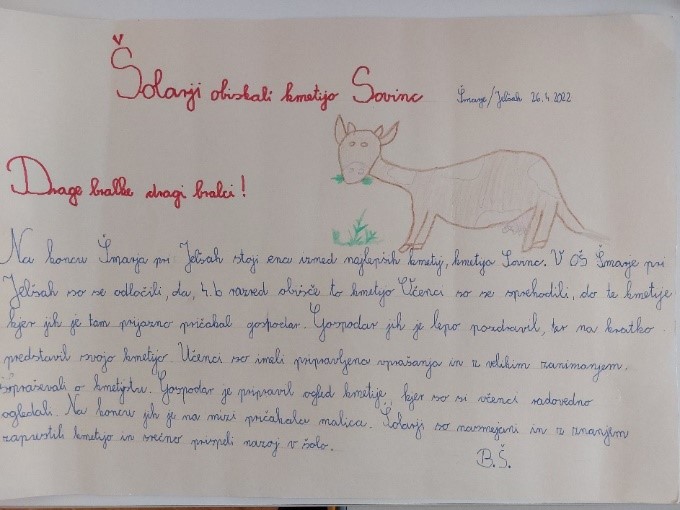 Šolarji obiskali kmetijo Sovinc
Šmarje/Jelšah 26.4.2022
Drage bralke dragi bralci!
Na koncu Šmarja pri Jelšah stoji ena izmed najlepših kmetij, kmetija Sovinc. V OŠ Šmarje pri
Jelšah so se odločili, da, 4.b razred obišče to kmetijo Učenci so se sprehodili, do te kmetije
kjer jih je tam prijazno pričakal gospodar. Gospodar jih je lepo pozdravil, ter na kratko
predstavil svojo kmetijo. Učenci so imeli pripravljena vprašanja in z velikim zanimanjem.
spraševali o kmetijstvu. Gospodar je pripravil ogled kmetije, kjer so si učenci radovedno
ogledali. Na koncu jih je na mizi pričakala malica. Šolarji so nasmejani in z znanjem
zapustili kmetijo in srečno prispeli nazaj v šolo.
B.Š.